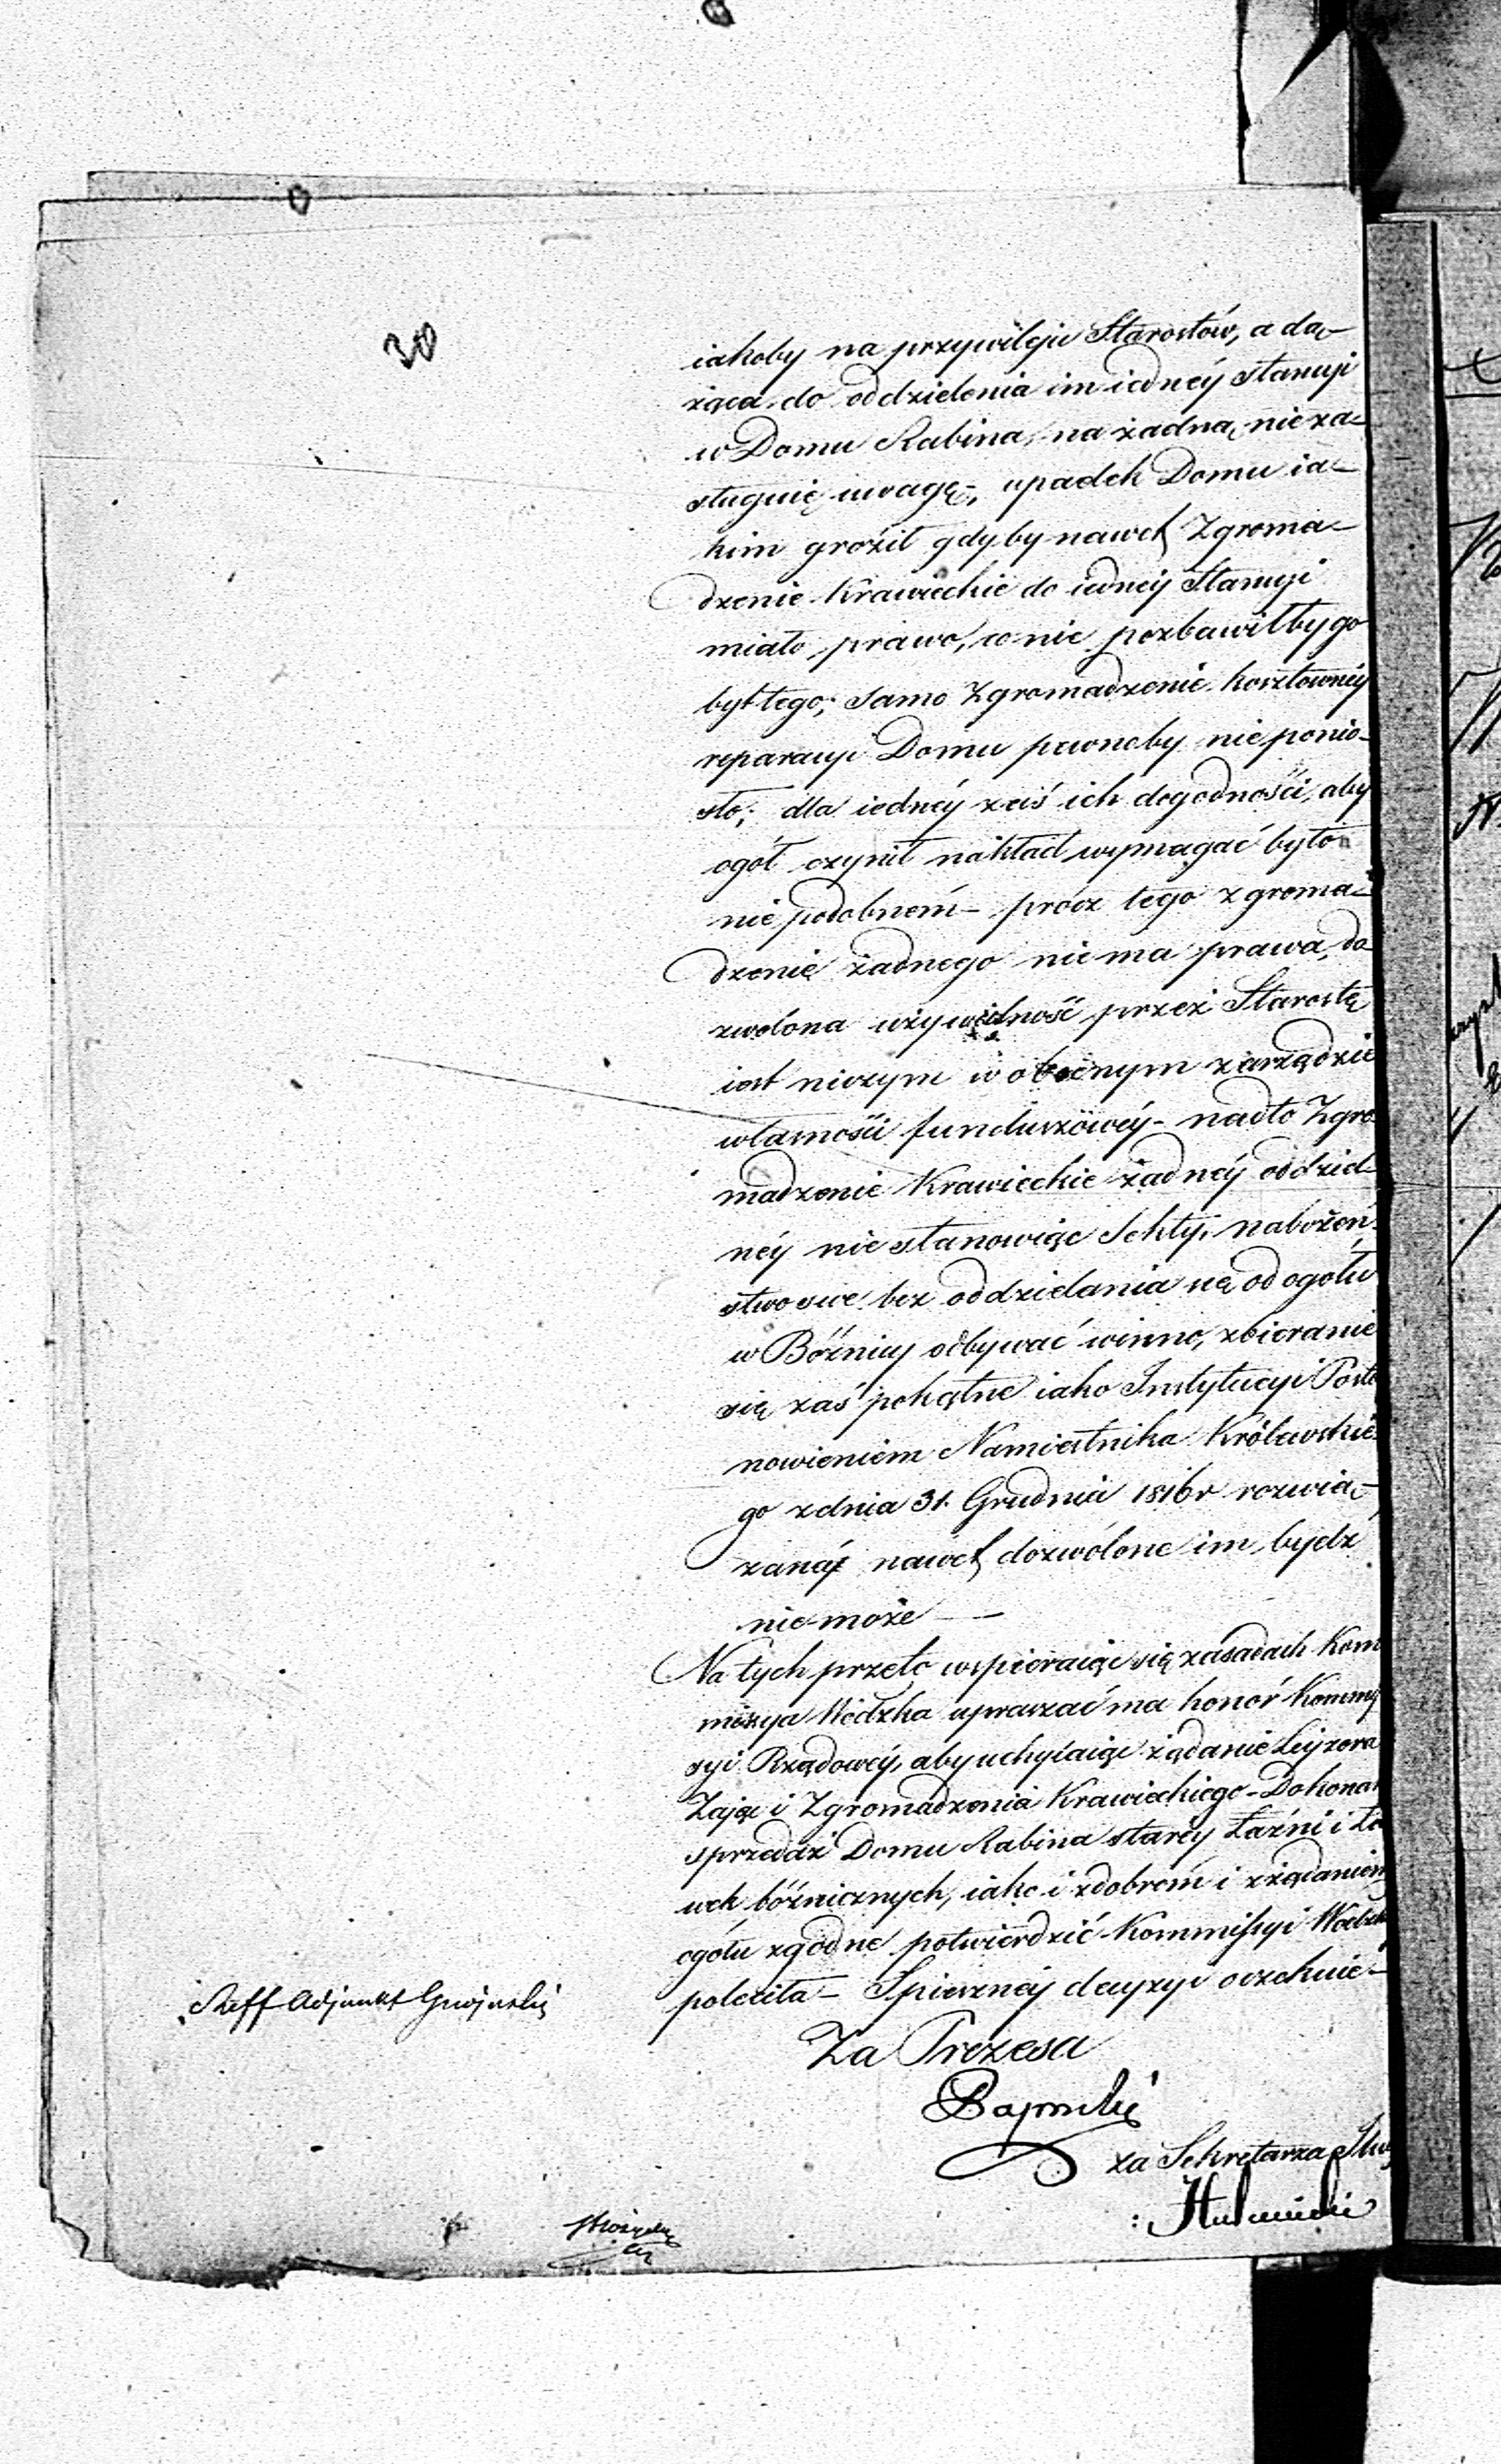 30
iakoby na przywileju Starostów, a dą-
żąca do oddzielenia im iedney stancyi
w Domu Rabina, na żadną nie za-
sługuię uwagę-, upadek Domu ia-
kim groźił gdyby nawet Zgroma-
dzenie Krawieckie do iedney Stancyi
miało prawo, co nie pozbawiłby go
był tego; samo Zgromadzenie kosztowney
reparacyi Domu pewneby nie ponio-
sło; dla iedney zaś ich dogodności, aby
ogół czynił nakład wymagać było
nie podobnem - prócz tego zgroma-
dzenie żadnego nie ma prawa, do
zwolona używalność przez Starostę
iest niczym w obecnym zarządzie
własności funduszowey - nadto Zgro
madzenie Krawieckie żadney oddziel
ney nie stanowiąc Sekty, nabożeń-
stwo swe bez oddzielania się od ogółu
w Bóżnicy odbywać winno, zbieranie
się zaś pokątne iako Instytucyi Posta
nowieniem Namiestnika Królewskie-
go z dnia 31. Grudnia 1816 r rozwią-
zanéj nawet dozwolone im bydź
nie może —
Na tych przeto wspieraiąc się zasadach Kom
missya Wodzka upraszać ma honor Kommis
syi Rządowey, aby uchylaiąc żądanie Leyzora
Zając i Zgromadzenia Krawieckiego - Dokonan
sprzedaż Domu Rabina starey Łaźni i Ła
wek bóżnicznych, iako i z dobrem i z żądaniem
ogółu zgodne potwierdzić Kommissyi Wodzk
poleciła - Spieszney decyzyi oczekuie-
Reff Adjunkt
Za Prezesa
za Sekretarza